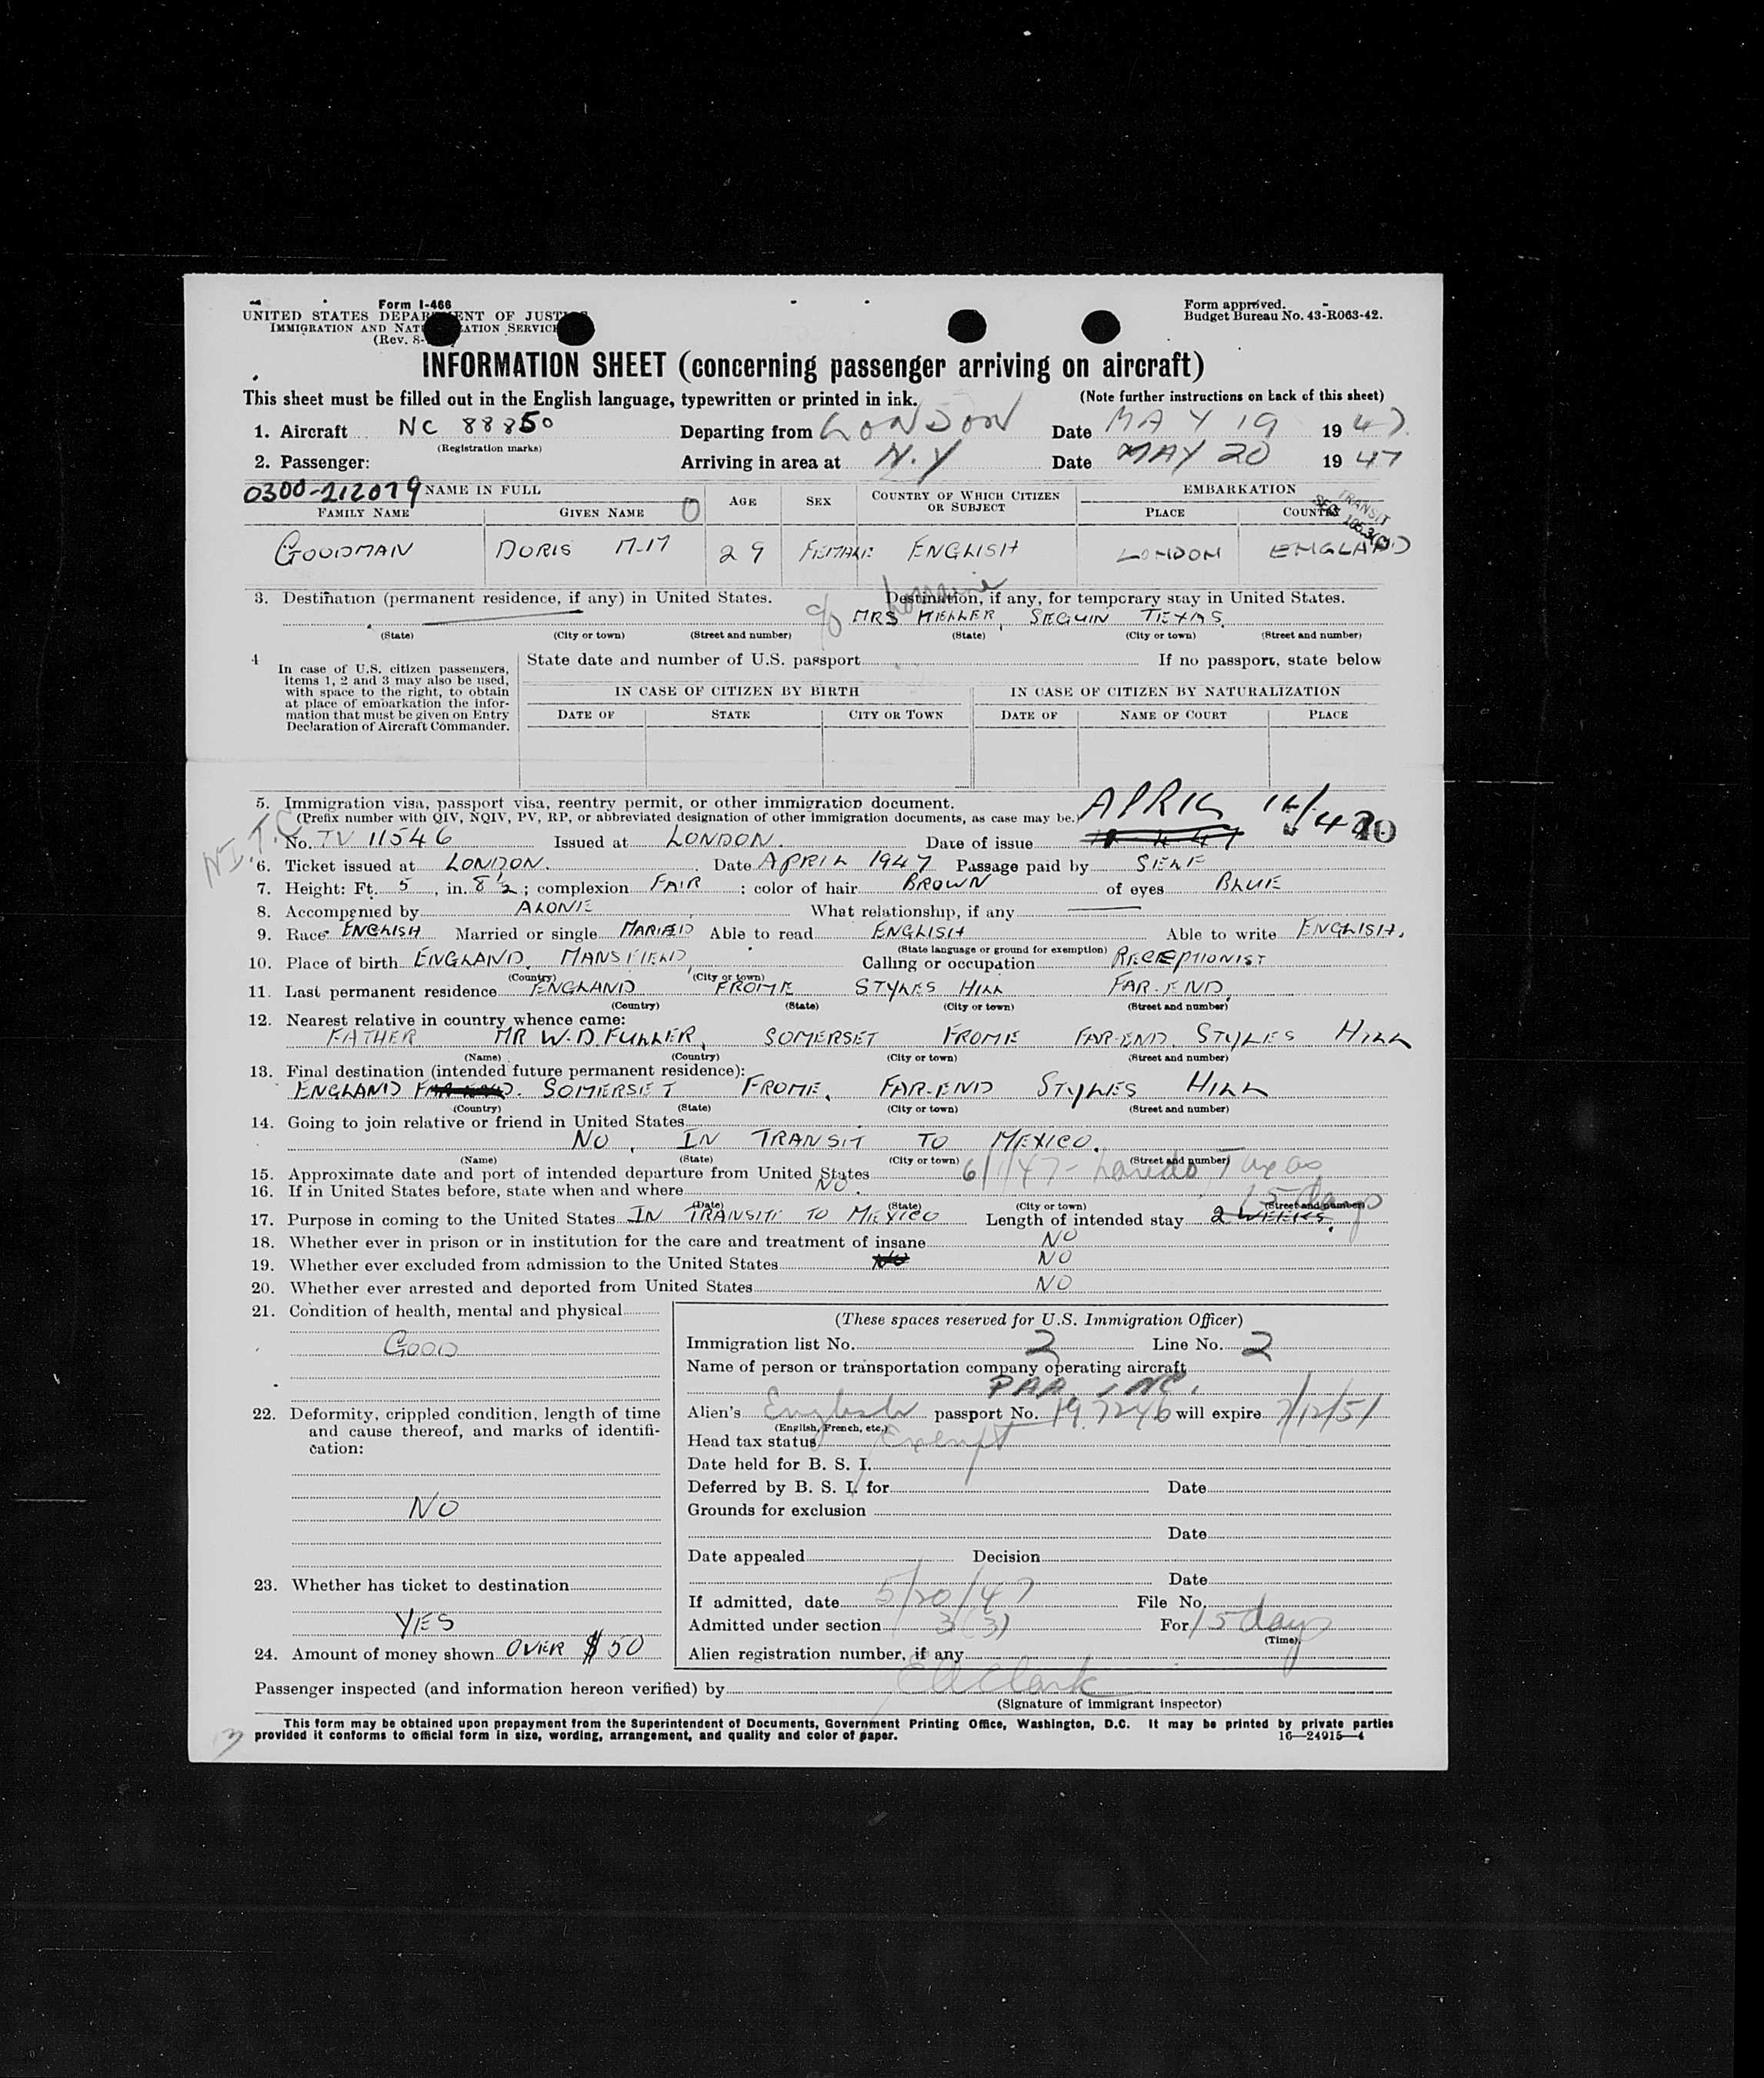 Form I-466
UNITED STATES DEPARTMENT OF JUSTICE
IMMIGRATION AND NATURALIZATION SERVICE
(Rev. 8-
Form approved.
Budget Bureau No. 43-R063-42.
INFORMATION SHEET (concerning passenger arriving on aircraft)
This sheet must be filled out in the English language, typewritten or printed in ink. (Note further instructions on back of this sheet)
1. Aircraft NC 88850 Departing from LONDON Date MAY 19 1947
(Registration marks)
2. Passenger: Arriving in area at N.Y Date MAY 20 1947
0300-212079 NAME IN FULL AGE SEX COUNTRY OF WHICH CITIZEN OR SUBJECT EMBARKATION
FAMILY NAME GIVEN NAME 0 PLACE COUNTRY
TRANSIT
GOODMAN DORIS M.M 29 FEMALE ENGLISH LONDON ENGLAND
3. Destination (permanent residence, if any) in United States. Destination, if any, for temporary stay in United States.
Lorraine
c/o MRS HELLER, SEGUIN TEXAS.
(State) (City or town) (Street and number) (State) (City or town) (Street and number)
4 In case of U.S. citizen passengers, items 1, 2 and 3 may also be used, with space to the right, to obtain at place of embarkation the information that must be given on Entry Declaration of Aircraft Commander.
State date and number of U.S. passport If no passport, state below
IN CASE OF CITIZEN BY BIRTH IN CASE OF CITIZEN BY NATURALIZATION
DATE OF STATE CITY OR TOWN DATE OF NAME OF COURT PLACE
5. Immigration visa, passport visa, reentry permit, or other immigration document. APRIL
(Prefix number with QIV, NQIV, PV, RP, or abbreviated designation of other immigration documents, as case may be.)
No. TV 11546 Issued at LONDON. Date of issue
6. Ticket issued at LONDON. Date APRIL 1947 Passage paid by SELF
7. Height: Ft. 5, in. 8½; complexion FAIR; color of hair BROWN of eyes BLUE
8. Accompenied by ALONE What relationship, if any
9. Race ENGLISH Married or single MARIED Able to read ENGLISH Able to write ENGLISH.
(State language or ground for exemption)
10. Place of birth ENGLAND, MANSFIELD, Calling or occupation RECEPTIONIST
(Country) (City or town)
11. Last permanent residence ENGLAND FROME STYLES HILL FAR-END.
(Country) (State) (City or town) (Street and number)
12. Nearest relative in country whence came:
FATHER MR W.D. FULLER, SOMERSET FROME FAR-END, STYLES HILL
(Name) (Country) (City or town) (Street and number)
13. Final destination (intended future permanent residence):
ENGLAND SOMERSET FROME, FAR-END STYLES HILL
(Country) (State) (City or town) (Street and number)
14. Going to join relative or friend in United States
NO, IN TRANSIT TO MEXICO.
(Name) (State) (City or town) (Street and number)
15. Approximate date and port of intended departure from United States 6/1/47 - Laredo, Texas
16. If in United States before, state when and where NO.
(Date) (State) (City or town) (Street and number)
15 days
17. Purpose in coming to the United States IN TRANSIT TO MEXICO Length of intended stay 2 WEEKS.
18. Whether ever in prison or in institution for the care and treatment of insane NO
19. Whether ever excluded from admission to the United States NO NO
20. Whether ever arrested and deported from United States NO
21. Condition of health, mental and physical
GOOD
22. Deformity, crippled condition, length of time and cause thereof, and marks of identification:
NO
23. Whether has ticket to destination
YES
24. Amount of money shown OVER $50
(These spaces reserved for U.S. Immigration Officer)
Immigration list No. 2 Line No. 2
Name of person or transportation company operating aircraft
PAA, INC.
Alien's English passport No. 197246 will expire 7/12/51
(English, French, etc.)
Head tax status Exempt
Date held for B. S. I.
Deferred by B. S. I. for Date
Grounds for exclusion
Date
Date appealed Decision
Date
If admitted, date 5/20/47 File No.
Admitted under section 3(3) For 15 days
(Time)
Alien registration number, if any
Passenger inspected (and information hereon verified) by E A Clark
(Signature of immigrant inspector)
This form may be obtained upon prepayment from the Superintendent of Documents, Government Printing Office, Washington, D.C. It may be printed by private parties
provided it conforms to official form in size, wording, arrangement, and quality and color of paper. 16—24915—4